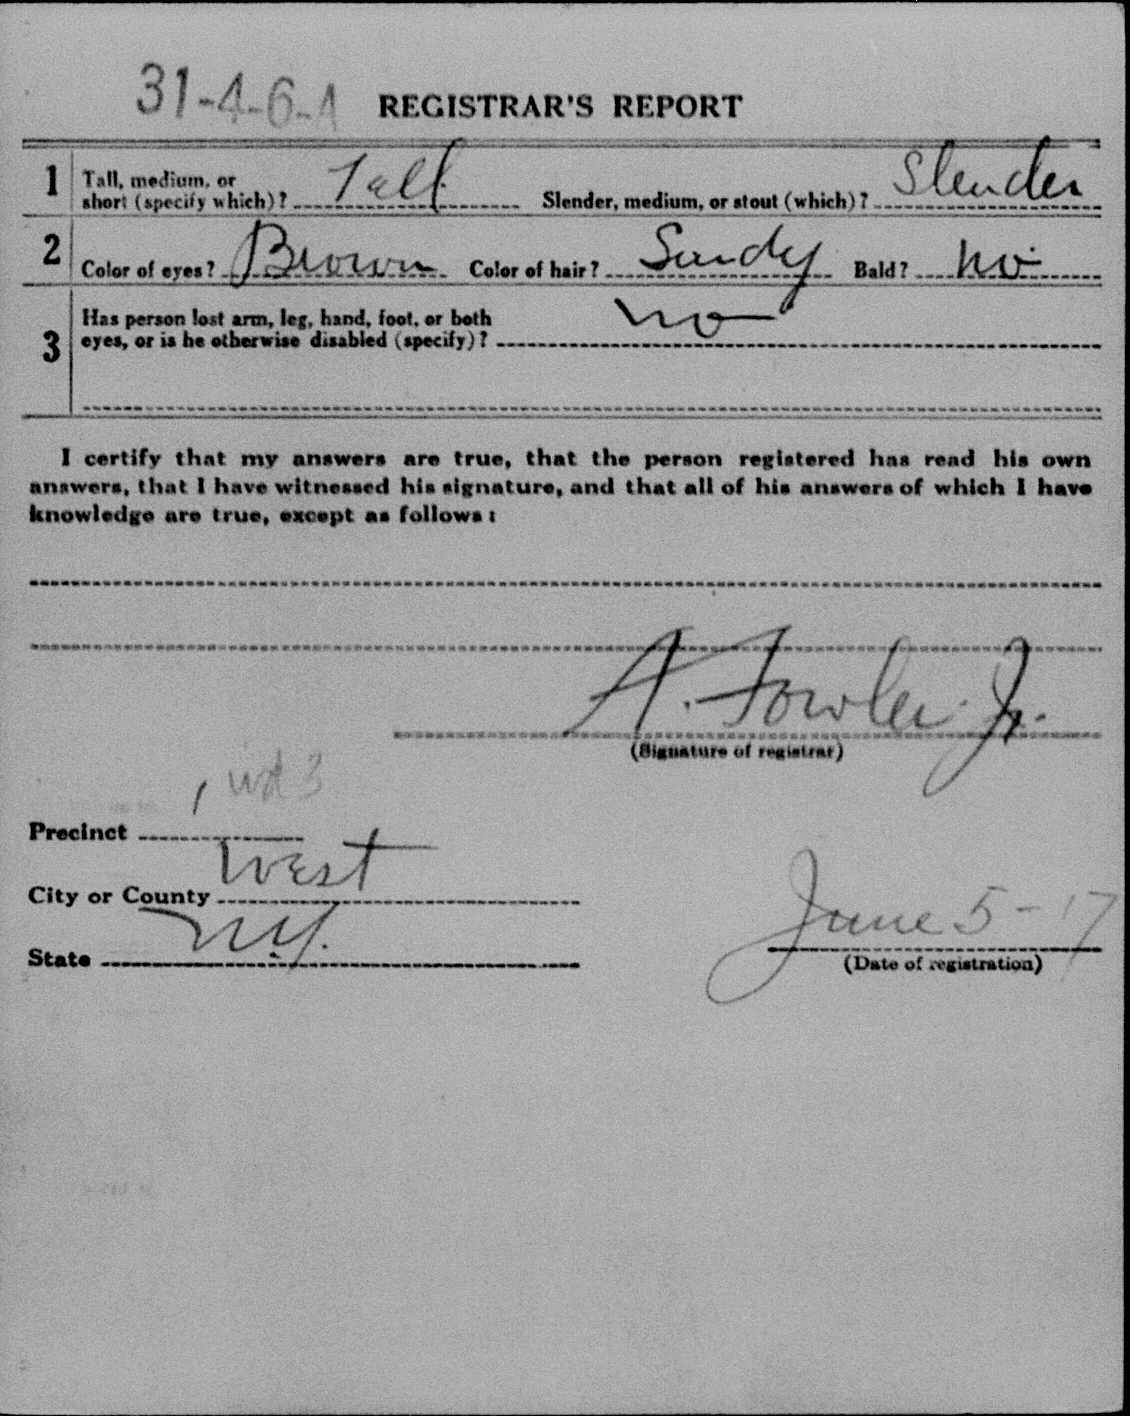 31-4-6-A REGISTRAR'S REPORT
1 Tall, medium, or
short (specify which)? Tall Slender, medium, or stout (which)? Slender
2 Color of eyes? Brown Color of hair? Sandy Bald? No
3 Has person lost arm, leg, hand, foot, or both
eyes, or is he otherwise disabled (specify)? no
I certify that my answers are true, that the person registered has read his own
answers, that I have witnessed his signature, and that all of his answers of which I have
knowledge are true, except as follows:
A. Fowler Jr.
(Signature of registrar)
Precinct 1 wd 3
City or County West
State N.Y.
June 5-17
(Date of registration)